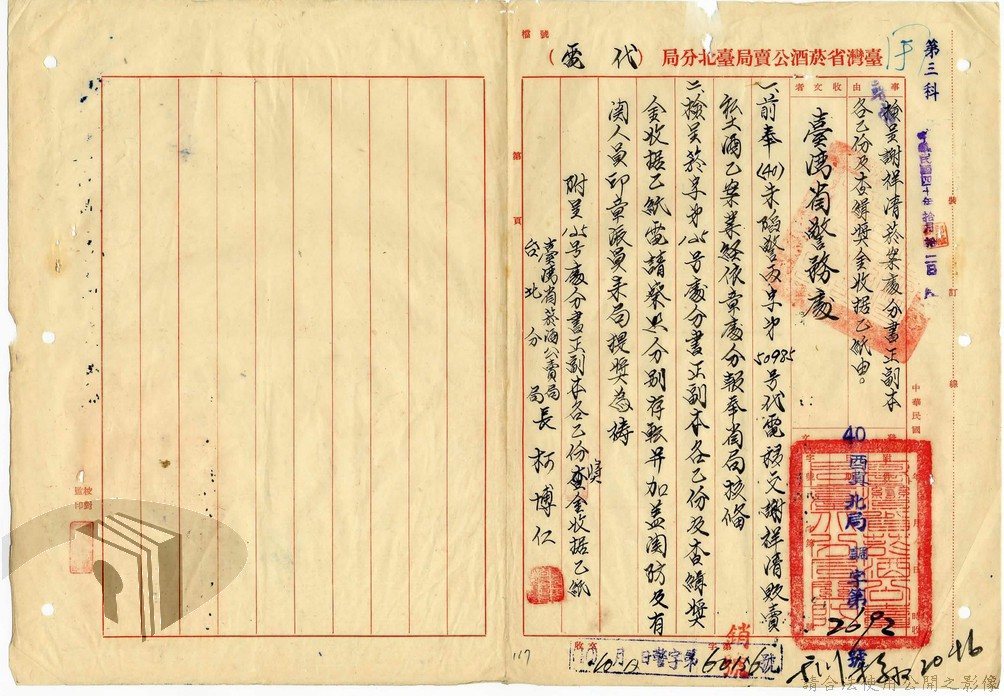 檔號
臺灣省菸酒公賣局臺北分局(代電)
第三科
事由
檢呈謝祥清菸案處分書正副本
各乙份及查緝獎金收据乙紙由。
收文者
臺灣省警務處
中華民國
40
酉真北局調字第2692號
一、前奉(40)未陷警友字第50985號代電移交謝祥清販賣
私土酒乙案業經依章處分報奉省局核備
二、檢呈菸字第125號處分書正副本各乙份及查緝獎
金收据乙紙電請察照分別存転并加盖関防及有
関人員印章派員来局提獎為禱
附呈125号處分書正副本各乙份查獎金收据乙紙
臺灣省菸酒公賣局
台北分局長柯博仁
第 頁
裝訂線
校對
監印
收
警字第60156號
銷號
117
請合法使用公開之影像